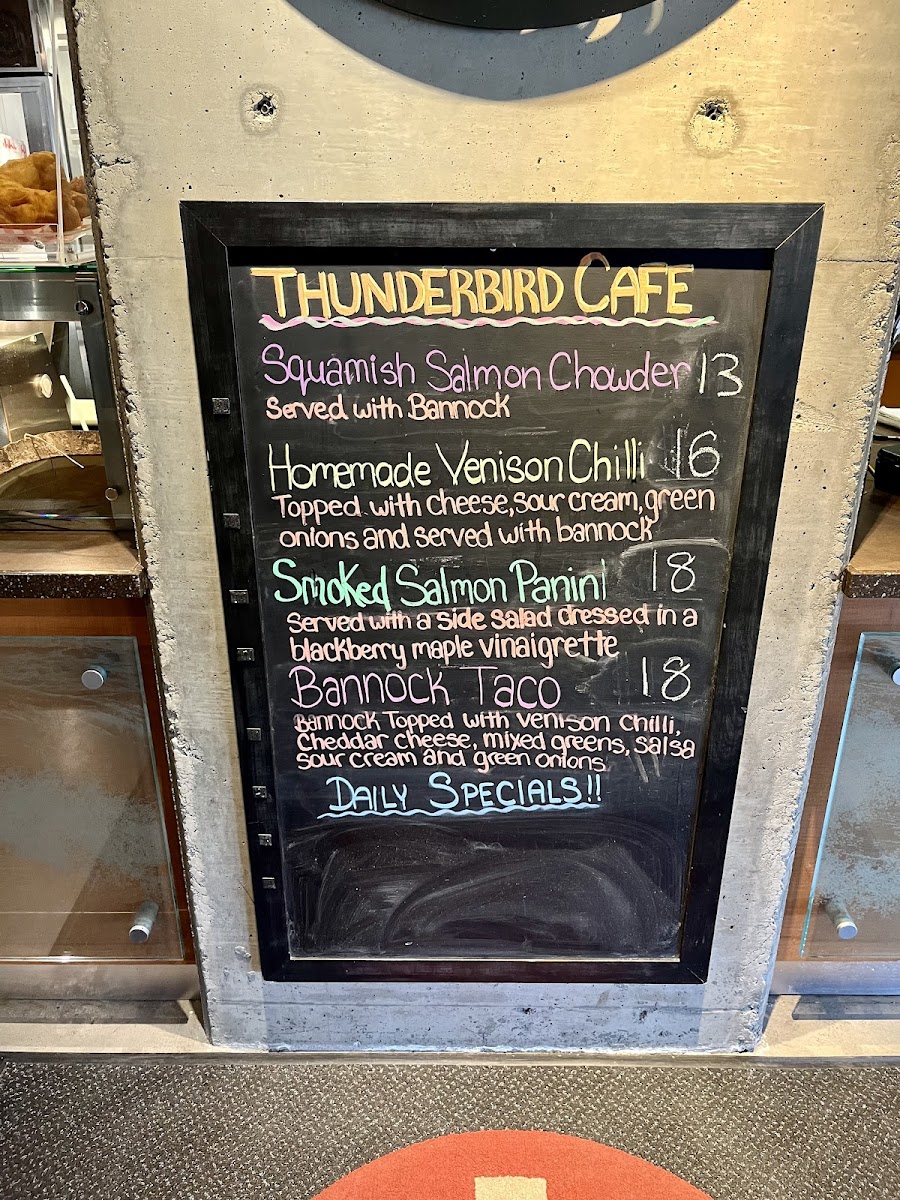 THUNDERBIRD CAFE
Squamish Salmon Chowder 13
Served with Bannock
Homemade Venison Chilli 16
Topped with cheese, sour cream, green
onions and served with bannock
Smoked Salmon Panini 18
Served with a side salad dressed in a
blackberry maple vinaigrette
Bannock Taco 18
Bannock Topped with venison chilli,
Cheddar cheese, mixed greens, salsa
sour cream and green onions
DAILY SPECIALS!!